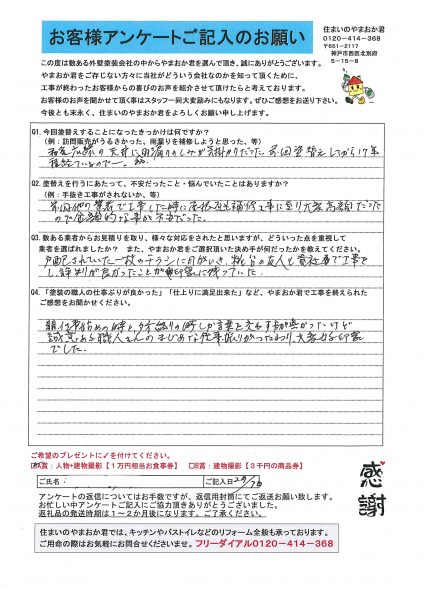 お客様アンケートご記入のお願い
住まいのやまおか君
0120-414-368
〒651-2117
神戸市西区北別府
5-15-8
この度は数ある外壁塗装会社の中からやまおか君を選んで頂き、誠にありがとうございます。
やまおか君をご存じない方々に当社がどういう会社なのかを知って頂くために、
工事が終わったお客様からの喜びのお声を紹介させて頂けたらと考えております。
お客様のお声を聞かせて頂く事はスタッフ一同大変励みにもなります。ぜひご感想をお送り下さい。
今後とも末永く、住まいのやまおか君をよろしくお願い申し上げます。
Q1. 今回塗替えすることになったきっかけは何ですか?
(例:訪問販売がうるさかった、雨漏りを補修しようと思った、等)
和室広縁の天井に雨漏りのしみが気掛かりだった。前回塗替えしてから17年
経っているので
Q2. 塗替えを行うにあたって、不安だったこと・悩んでいたことはありますか?
(例:手抜き工事がされないか、等)
前回他の業者で工事した時に屋根瓦も補修工事に至り大変高額だった
ので金額的な事が不安だった。
Q3. 数ある業者からお見積りを取り、様々な対応をされたと思いますが、どういった点を重視して
業者を選ばれましたか? また、やまおか君をご選択頂いた決め手が何だったかを教えてください。
戸配されていた一枚のチラシに目がいき、
の友人も貴社で工事を
し、評判が良かったことが印象に残っていた。
Q4. 「塗装の職人の仕事ぶりが良かった」「仕上りに満足出来た」など、やまおか君で工事を終えられた
ご感想をお聞かせください。
朝仕事始めの時と夕方終りの時しか言葉を交わす
なかったけど
誠意ある職人さんのまじめな仕事振りが
大変好印象
でした。
ご希望のプレゼントに✓を付けてください。
□A賞:人物+建物撮影【1万円相当お食事券】 □B賞:建物撮影【3千円の商品券】
ご氏名: ご記入日
アンケートの返信についてはお手数ですが、返信用封筒にてご返送お願い致します。
お忙しい中アンケートご記入にご協力頂きありがとうございました。
返礼品の発送時期は1~2か月後になります。ご了承ください。
感謝
住まいのやまおか君では、キッチンやバストイレなどのリフォーム全般も承っております。
ご用命の際はお気軽にお問合せくださいませ。フリーダイアル0120-414-368